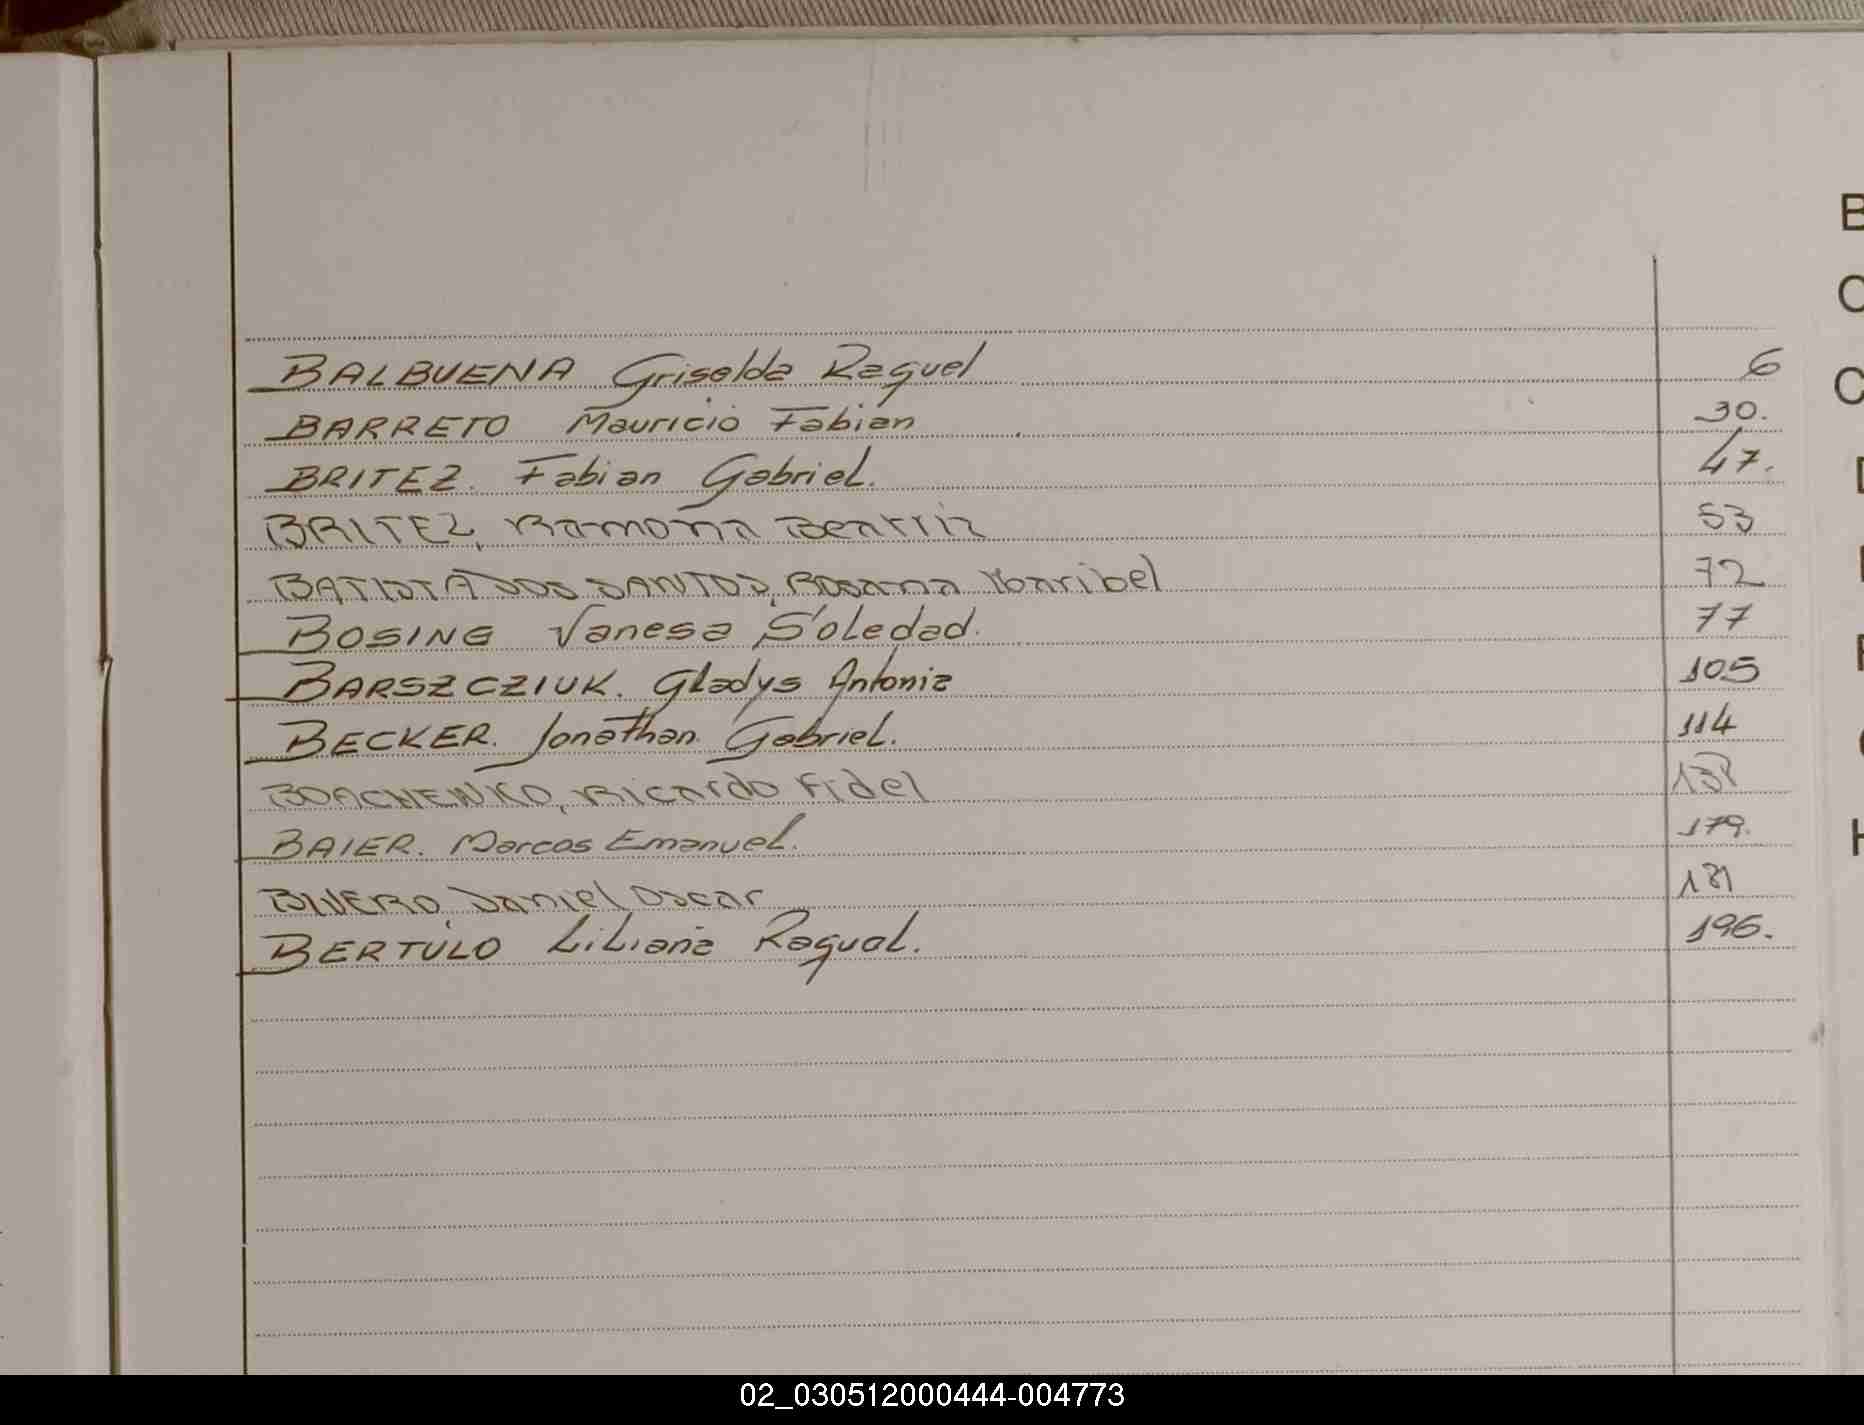 B
C
BALBUENA Griselda Raquel 6
C
BARRETO Mauricio Fabian 30.
BRITEZ. Fabian Gabriel. 47.
D
BRITEZ, Ramona Beatriz 53
BATISTA DOS SANTOS, Rosana Maribel 72
BOSING Vanesa Soledad. 77
BARSZCZIUK. Gladys Antonia 105
BECKER. Jonathan Gabriel. 114
BOACHENKO, Ricardo Fidel
BAIER. Marcos Emanuel. 179.
H
Daniel Oscar 181
BERTULO Liliana Raqual. 196.
02_030512000444-004773